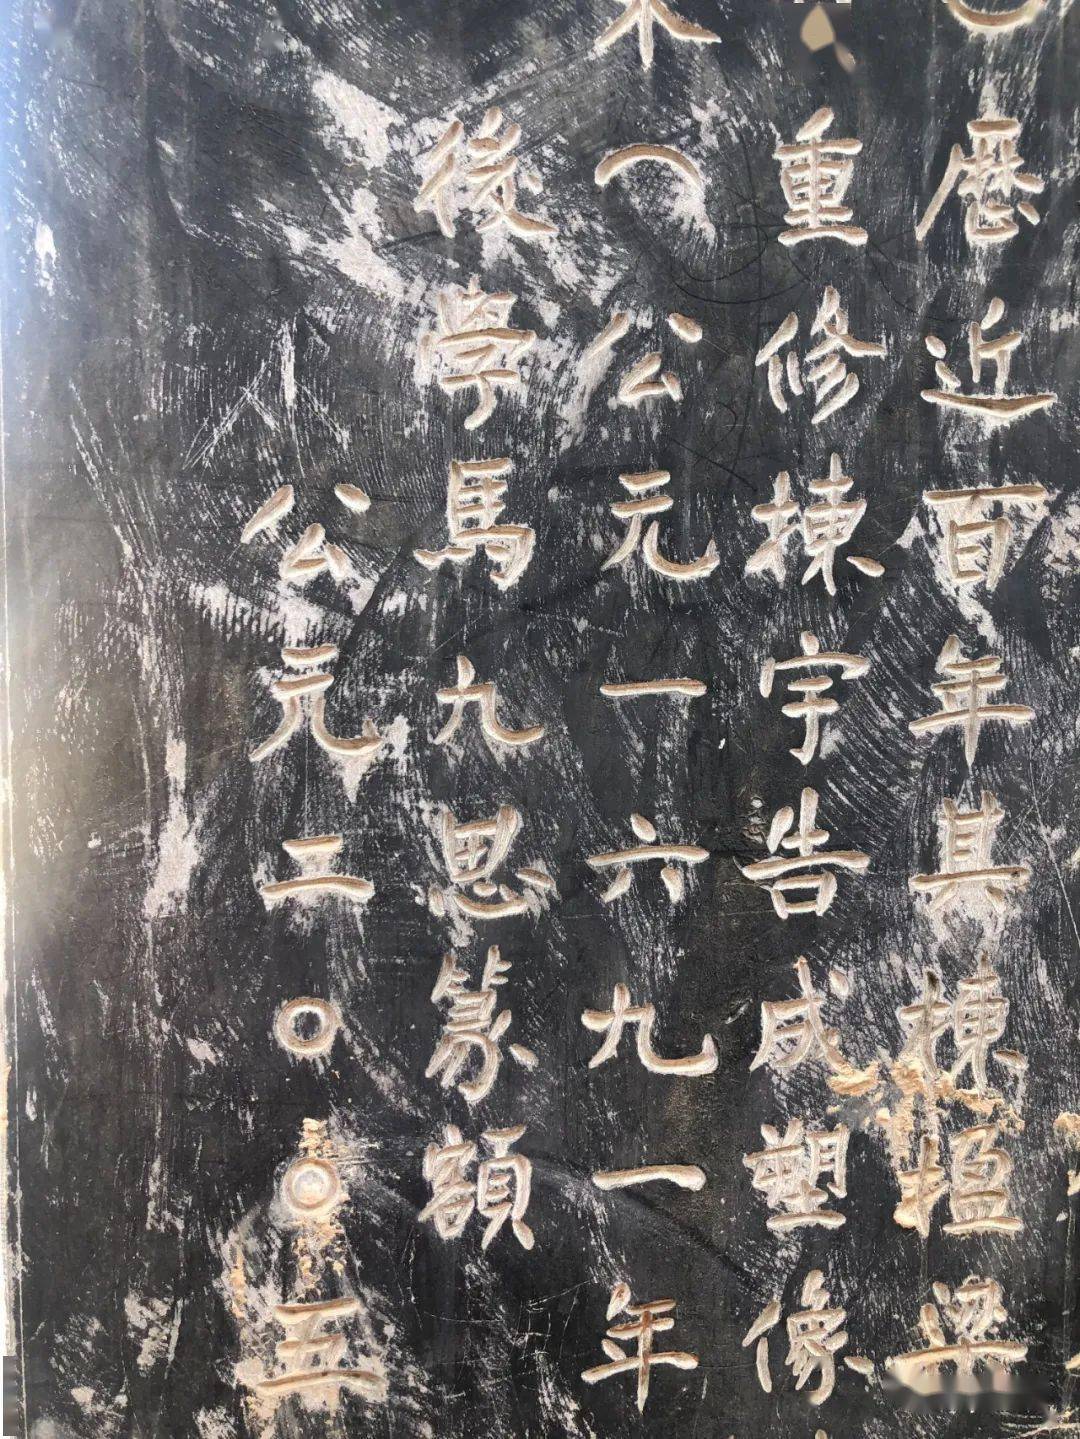 曆近百年其棟楹梁
重修棟宇告成塑像
（公元一六九一年
後學馬九思篆額
公元二〇〇五